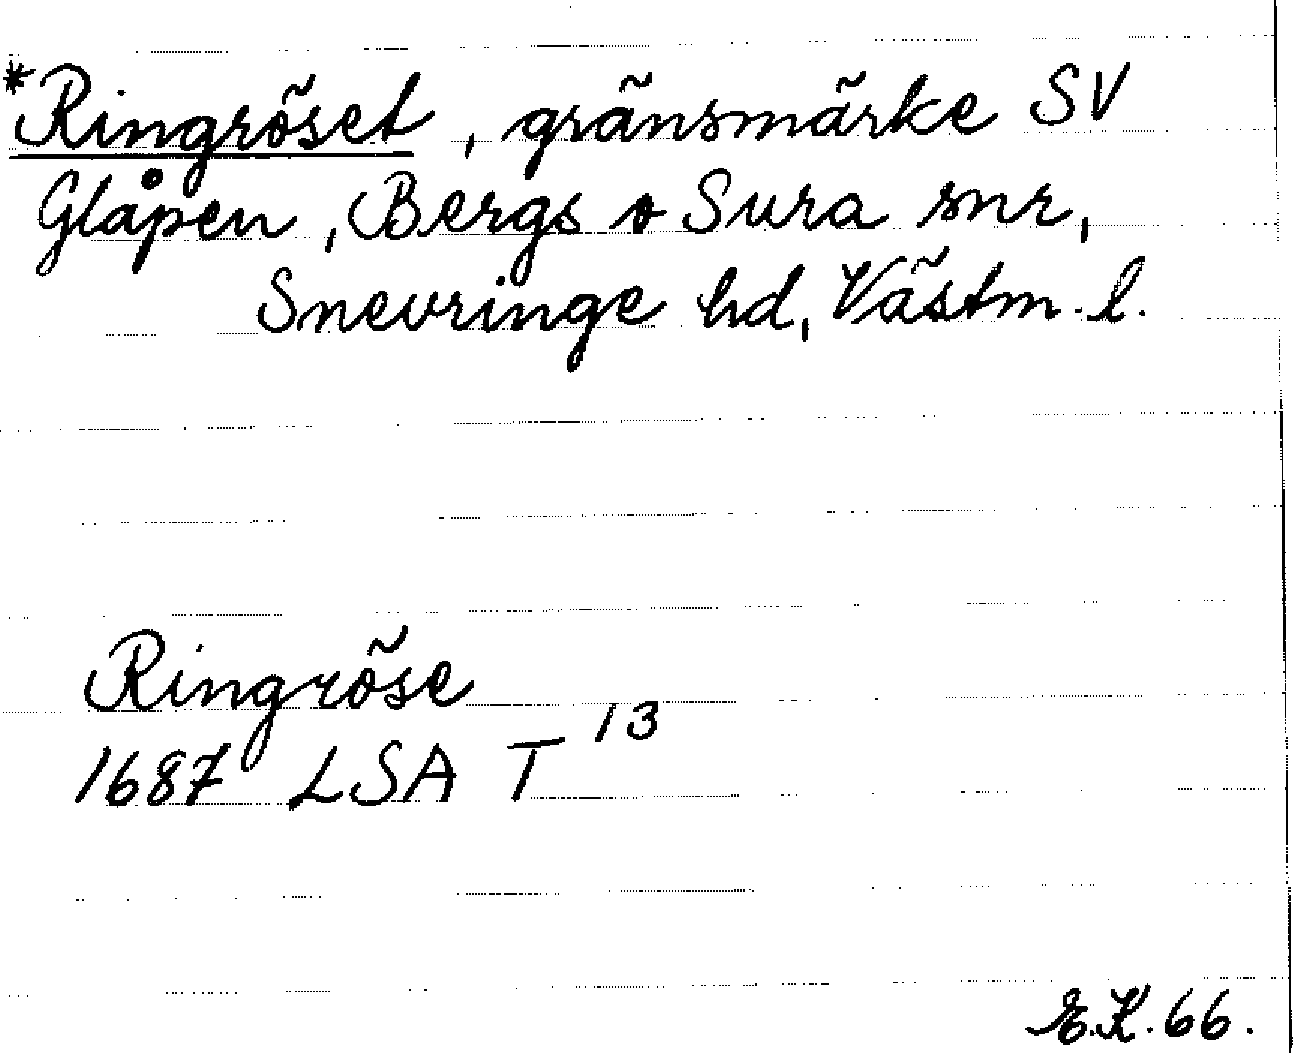 *Ringröset, gränsmärke SV
Glåpen, Bergs o Sura snr,
Snevringe hd, Västm. l.
Ringröse
1687 LSA T 13
E.K. 66.